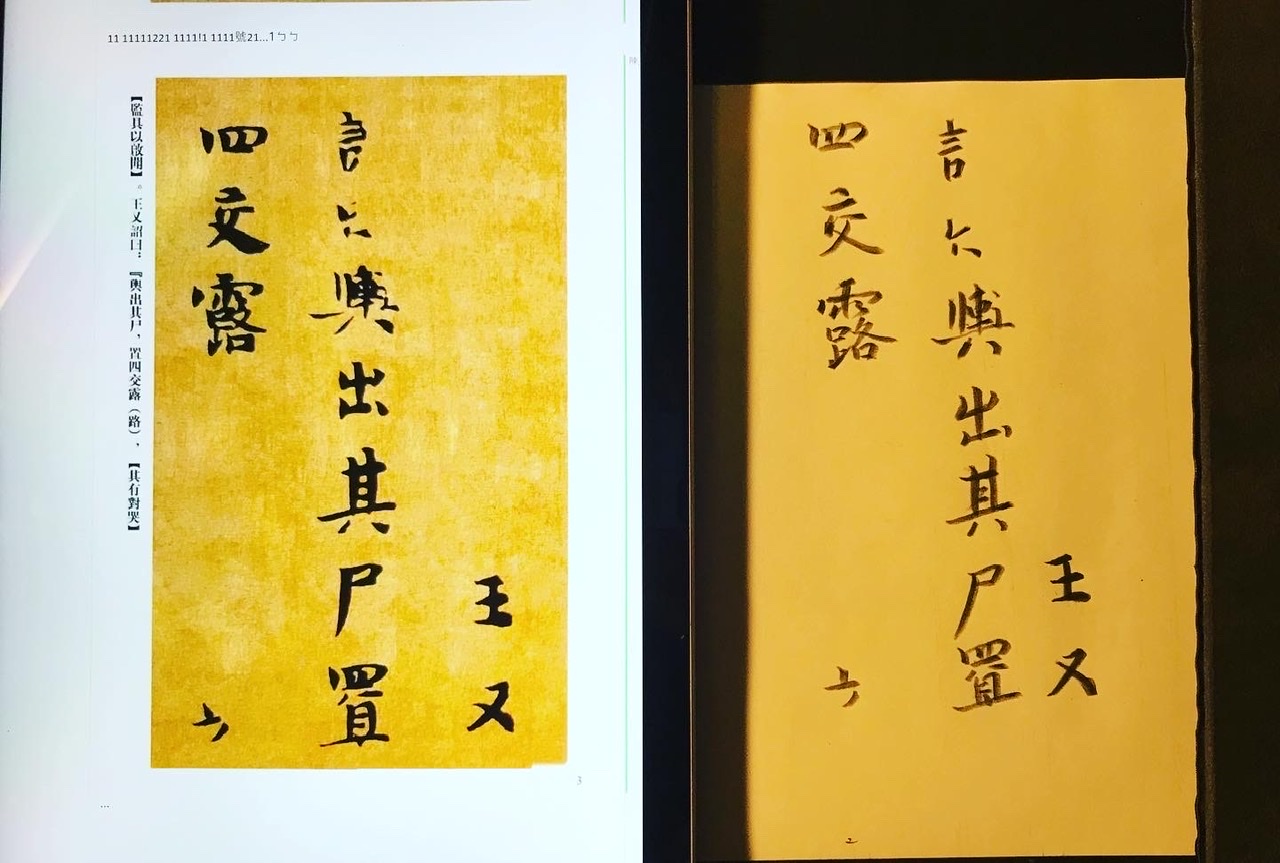 11 11111221 1111!1 1111號21...1ㄅㄅ
【監具以啟閉】。王又詔曰：『輿出其尸，置四交露（路），【其有對哭】
王又
輿出其尸置
四交露
3
...
王又
言
輿出其尸置
四交露